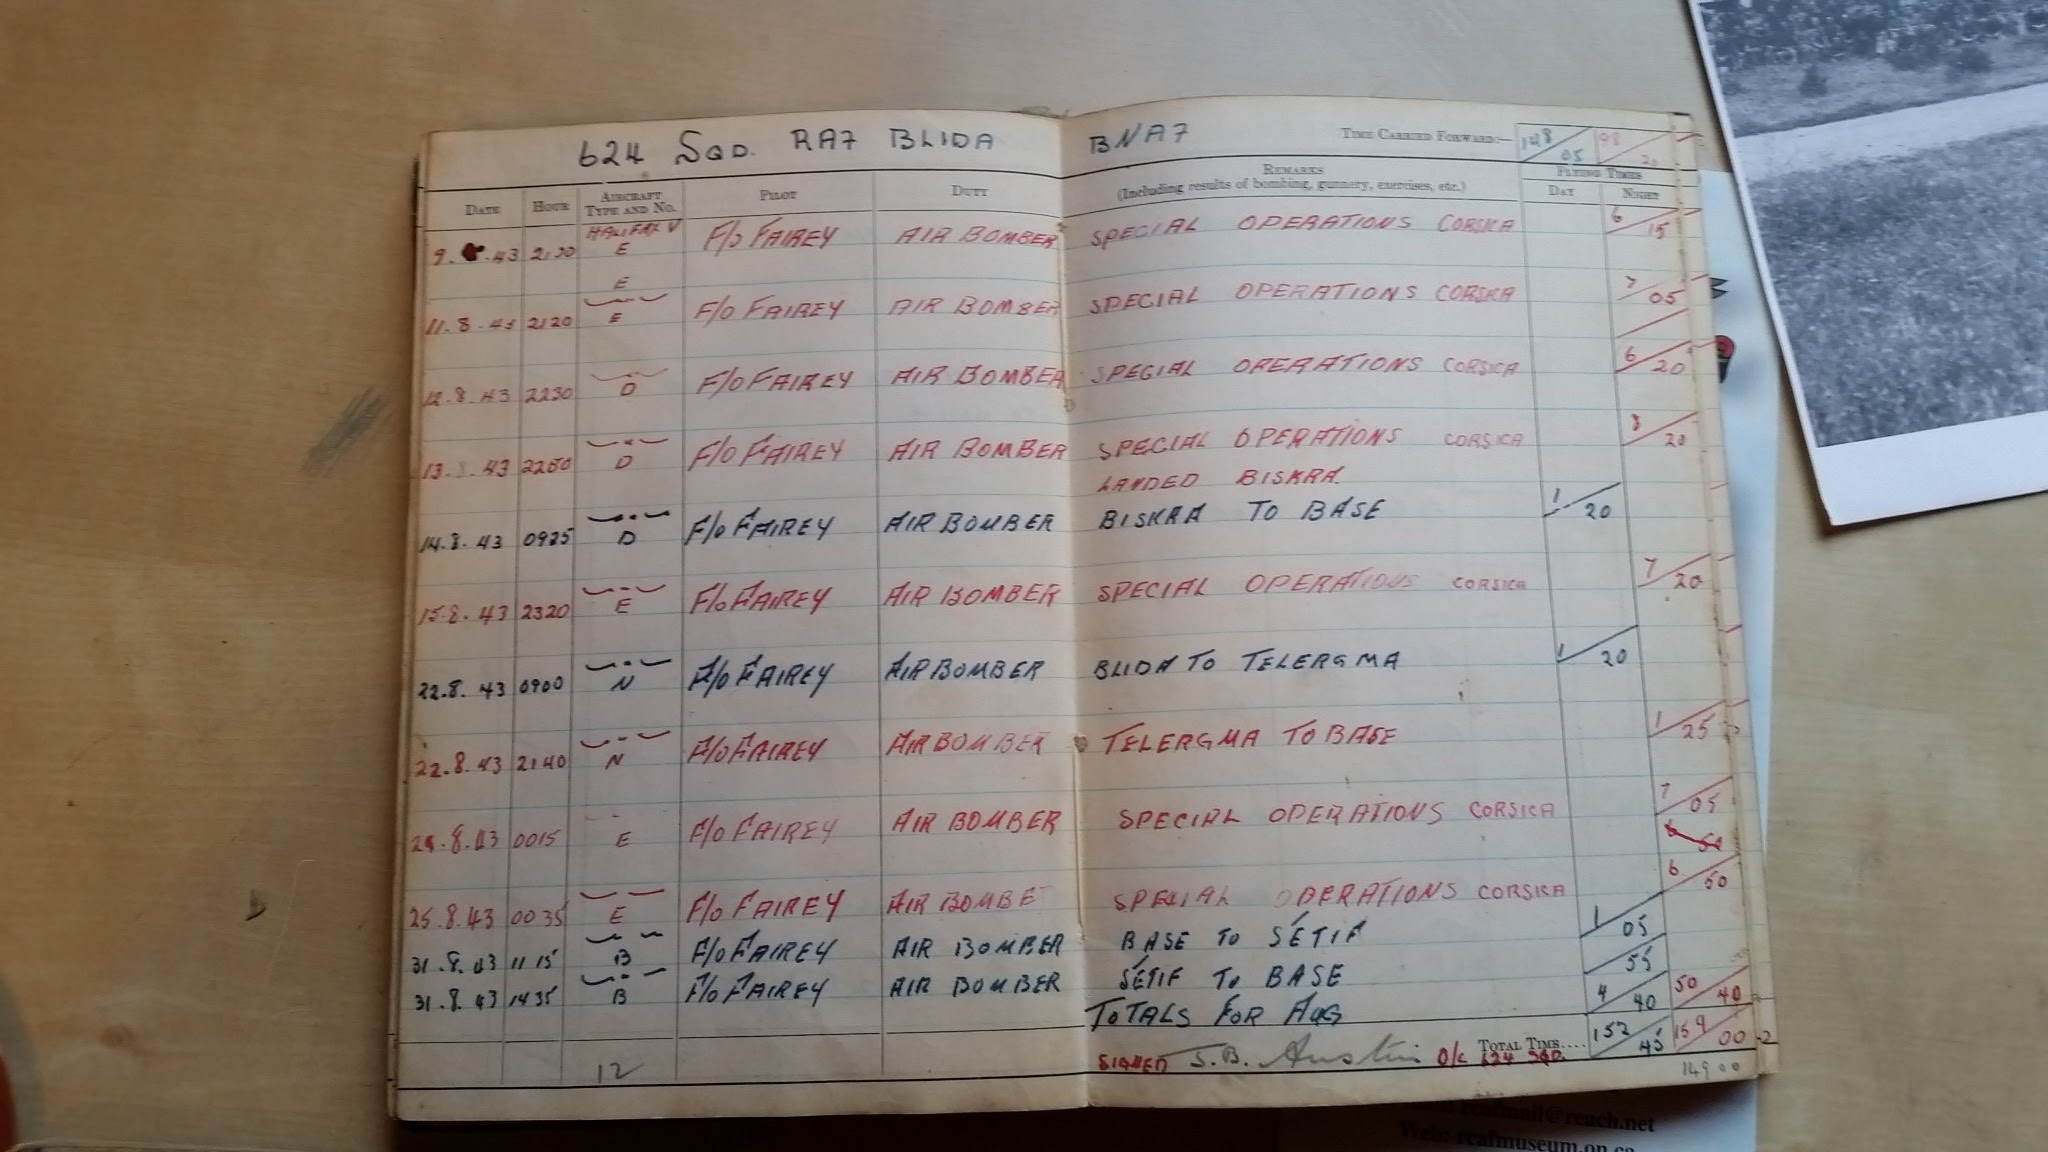 624 SQD. RAF BLIDA BNAF TIME CARRIED FORWARD:— 148 05 98 20
DATE HOUR AIRCRAFT TYPE AND NO. PILOT DUTY REMARKS (Including results of bombing, gunnery, exercises, etc.) FLYING TIMES DAY NIGHT
9. .43 2130 HALIFAX V E F/O FAIREY AIR BOMBER SPECIAL OPERATIONS CORSICA 6 15
E
11.8.43 2120 E F/O FAIREY AIR BOMBER SPECIAL OPERATIONS CORSICA 7 05
12.8.43 2230 D F/O FAIREY AIR BOMBER SPECIAL OPERATIONS CORSICA 6 20
13.8.43 2250 D F/O FAIREY AIR BOMBER SPECIAL OPERATIONS CORSICA 8 20
LANDED BISKRA.
14.8.43 0925 D F/O FAIREY AIR BOMBER BISKRA TO BASE 1 20
15.8.43 2320 E F/O FAIREY AIR BOMBER SPECIAL OPERATIONS CORSICA 7 20
22.8.43 0900 N F/O FAIREY AIR BOMBER BLIDA TO TELERGMA 1 20
22.8.43 2140 N F/O FAIREY AIR BOMBER TELERGMA TO BASE 1 25
.8.43 0015 E F/O FAIREY AIR BOMBER SPECIAL OPERATIONS CORSICA 7 05
6 50
25.8.43 0035 E F/O FAIREY AIR BOMBE SPECIAL OPERATIONS CORSICA 6 50
31.8.43 1115 B F/O FAIREY AIR BOMBER BASE TO SÉTIF 1 05
31.8.43 1435 B F/O FAIREY AIR BOMBER SÉTIF TO BASE 55
TOTALS FOR AUG 4 40 50 40
TOTAL TIME.... 152 45 159 00
12 SIGNED S.B. Austin O/C 624 SQD.
149 00
realmail@reach.net
Web: rcafmuseum.on.ca